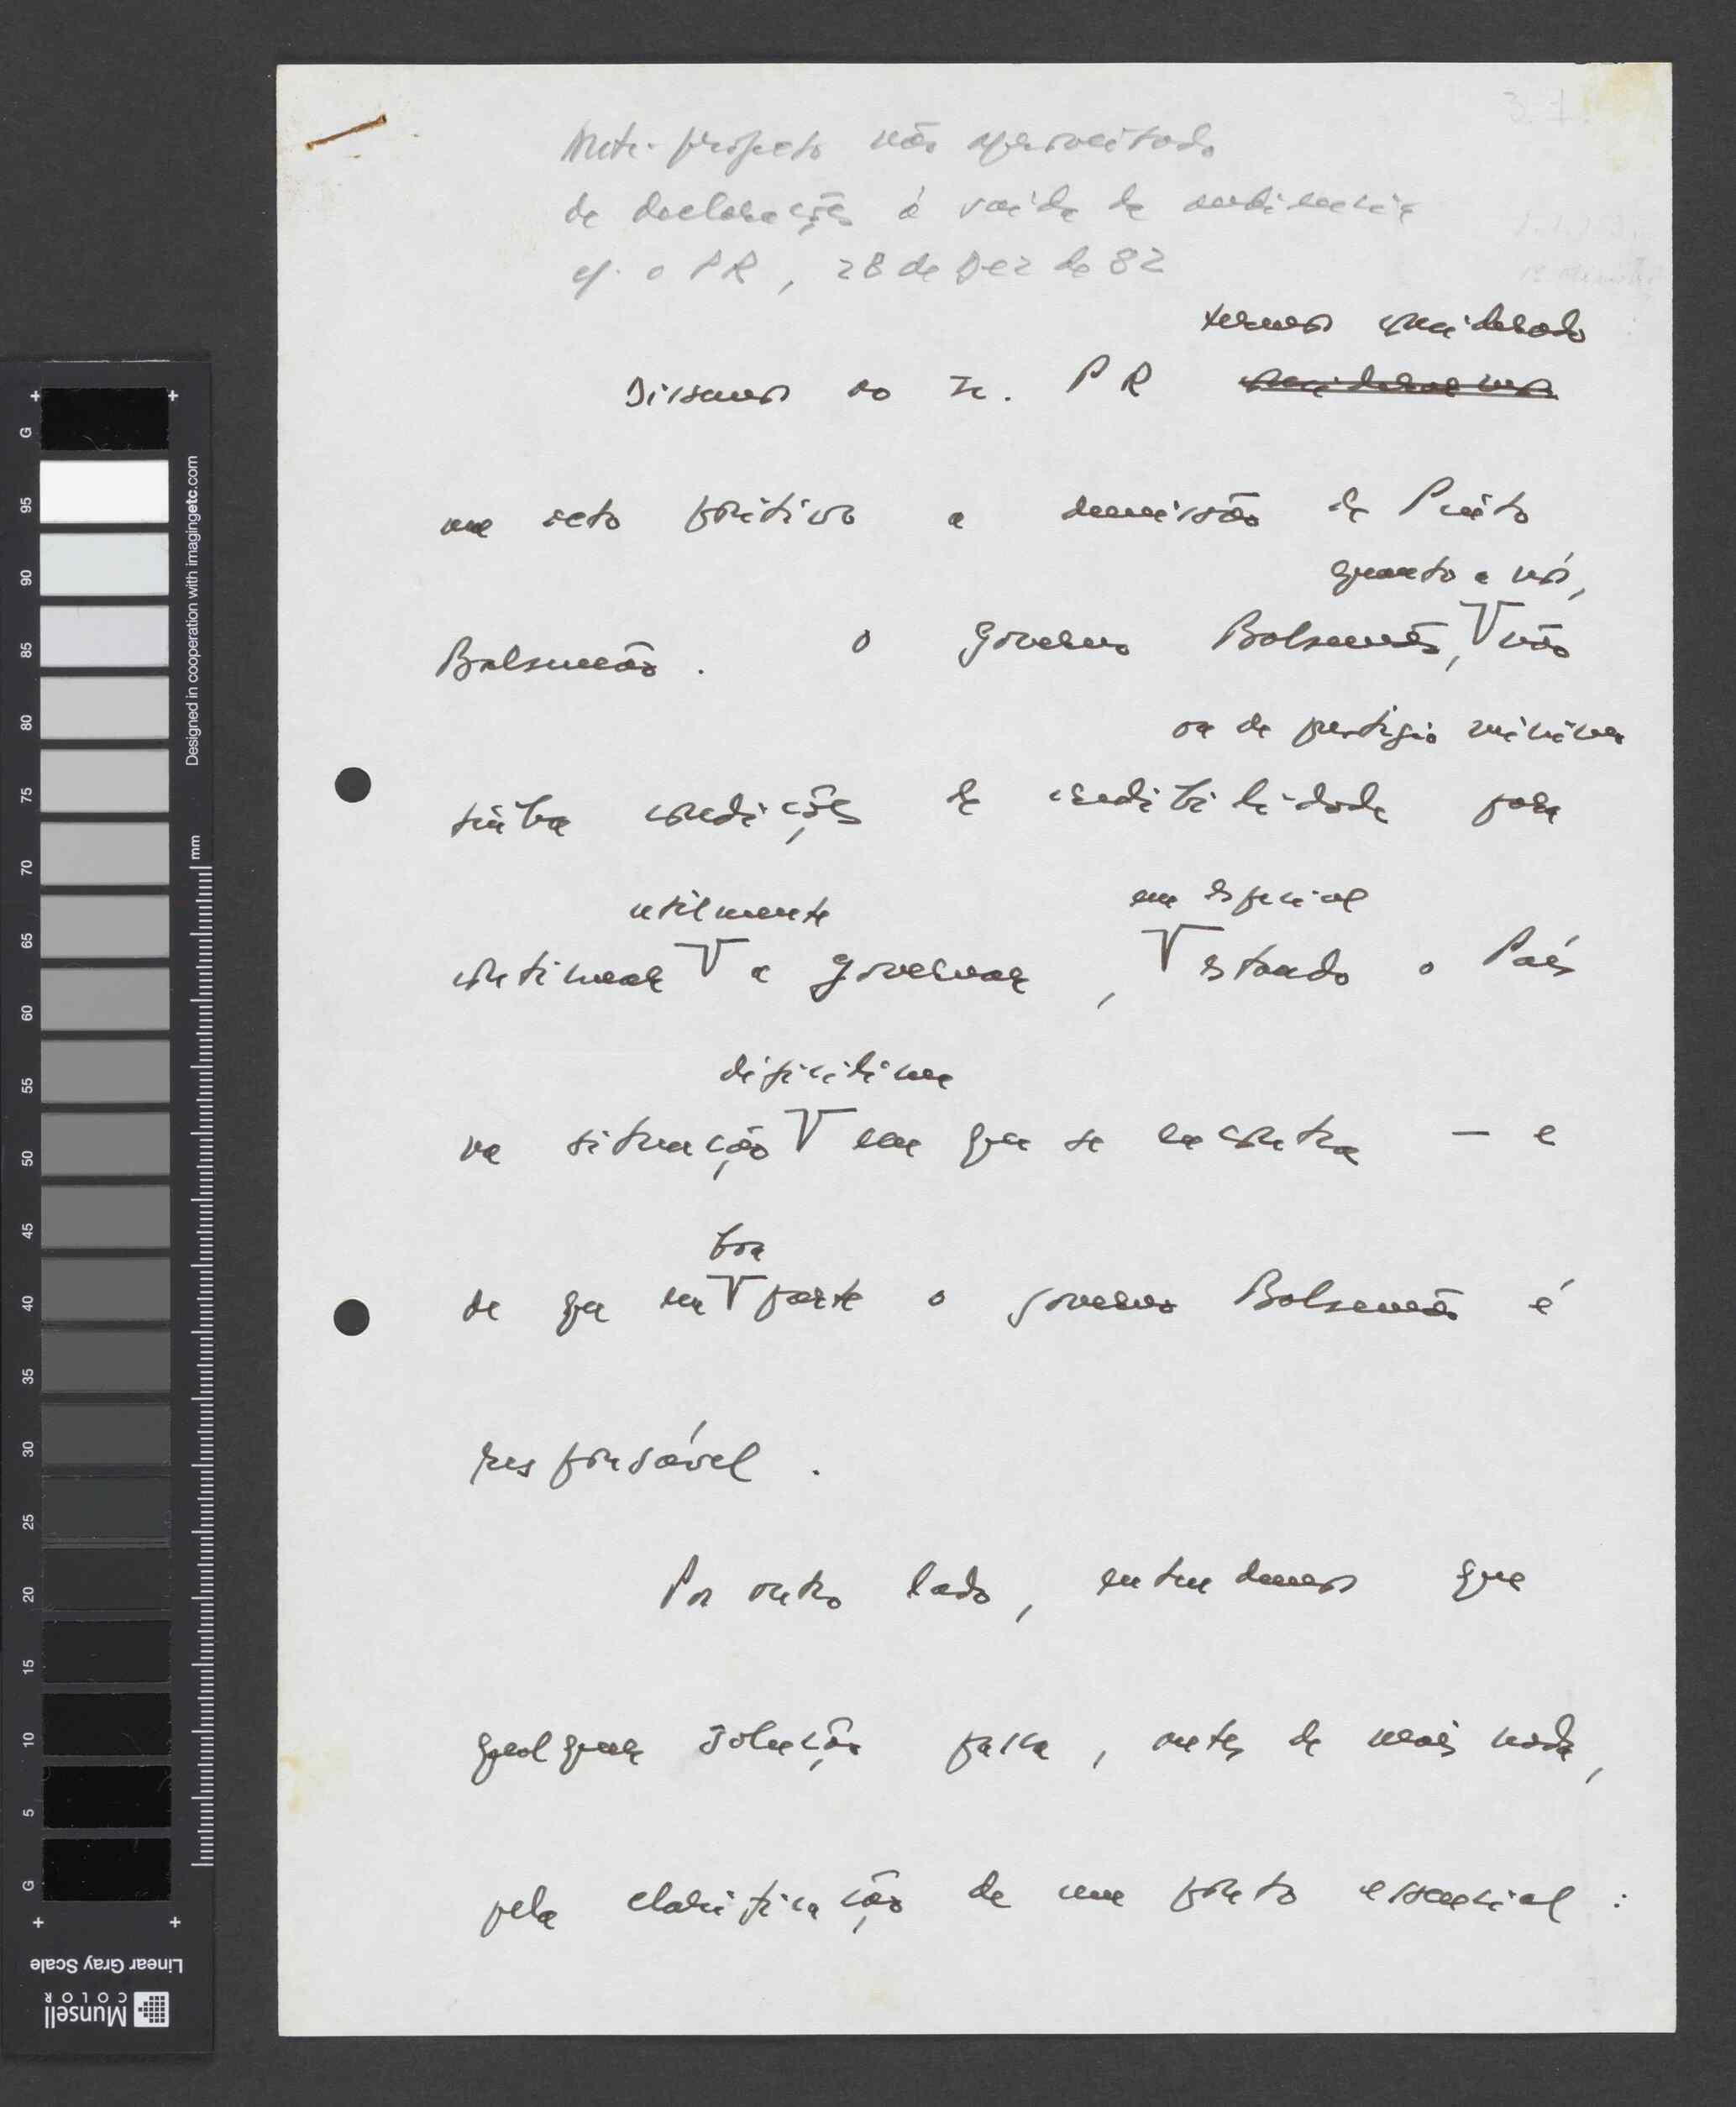 Ante-projecto não aproveitado
de declaração à saída da audiência
c/. o PR, 28 de Dez de 82
termos considerado
Dissemos ao Sr. PR consideramos
um acto positivo a demissão de Pinto
quanto a nós,
Balsemão. O governo Balsemão, não
ou de prestígio mínimas
tinha condições de credibilidade para
utilmente em especial
continuar a governar, estando o País
dificílima
na situação em que se encontra — e
boa
de que em parte o governo Balsemão é
responsável.
Por outro lado, entendemos que
qualquer solução passa, antes de mais nada,
pela clarificação de um ponto essencial:
G
95
90
85
80
75
70
65
60
55
50
45
40
35
30
25
20
15
10
5
G
mm
Designed in cooperation with imagingetc.com
Linear Gray Scale
Munsell
COLOR